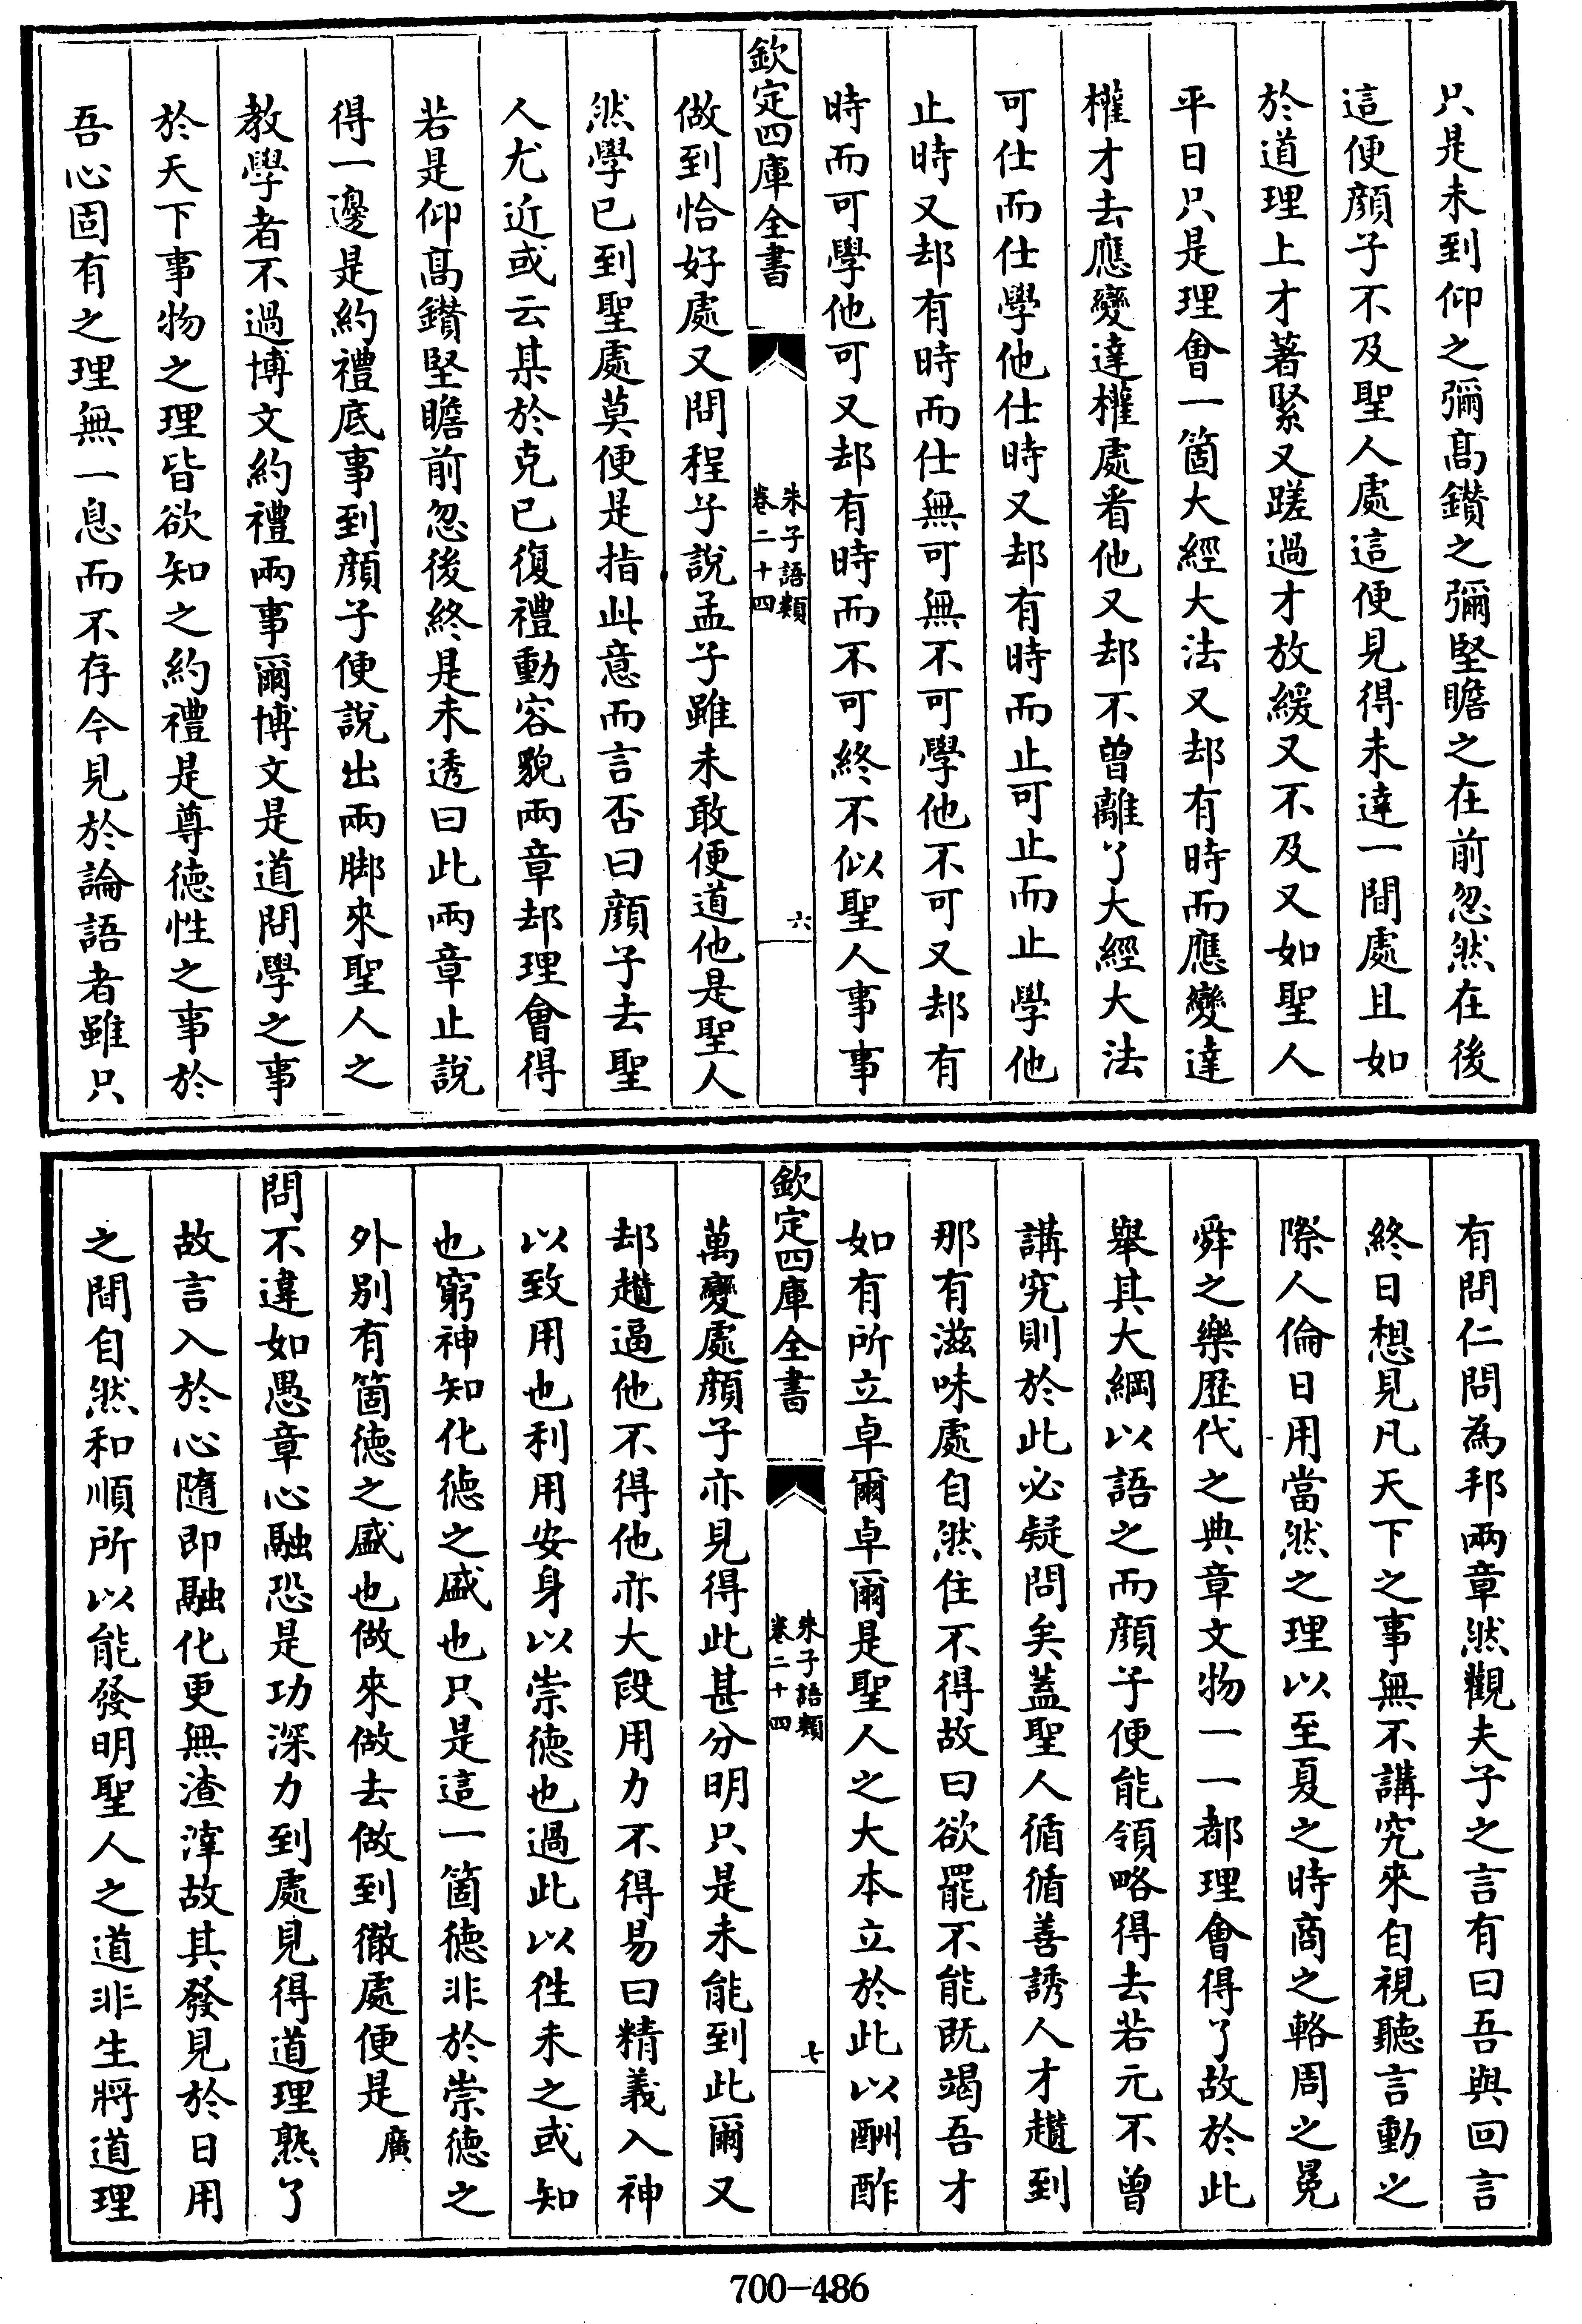 只是未到仰之彌髙鑚之彌堅瞻之在前忽然在後
這便顔子不及聖人處這便見得未達一間處且如
於道理上才著緊又蹉過才放緩又不及又如聖人
平日只是理會一箇大經大法又却有時而應變達
權才去應變達權處看他又却不曾離了大經大法
可仕而仕學他仕時又却有時而止可止而止學他
止時又却有時而仕無可無不可學他不可又却有
時而可學他可又却有時而不可終不似聖人事事
欽定四庫全書
朱子語類
卷二十四
六
做到恰好處又問程子說孟子雖未敢便道他是聖人
然學已到聖處莫便是指此意而言否曰顔子去聖
人尤近或云某於克己復禮動容貌兩章却理會得
若是仰髙鑚堅瞻前忽後終是未透曰此兩章止說
得一邊是約禮底事到顔子便說出兩脚來聖人之
教學者不過博文約禮兩事爾博文是道問學之事
於天下事物之理皆欲知之約禮是尊德性之事於
吾心固有之理無一息而不存今見於論語者雖只
有問仁問為邦兩章然觀夫子之言有曰吾與回言
終日想見凡天下之事無不講究來自視聽言動之
際人倫日用當然之理以至夏之時商之輅周之冕
舜之樂歷代之典章文物一一都理會得了故於此
舉其大綱以語之而顔子便能領略得去若元不曾
講究則於此必疑問矣蓋聖人循循善誘人才趲到
那有滋味處自然住不得故曰欲罷不能既竭吾才
如有所立卓爾卓爾是聖人之大本立於此以酬酢
欽定四庫全書
朱子語類
卷二十四
七
萬變處顔子亦見得此甚分明只是未能到此爾又
却趲逼他不得他亦大段用力不得易曰精義入神
以致用也利用安身以崇徳也過此以徃未之或知
也窮神知化徳之盛也只是這一箇徳非於崇徳之
外别有箇徳之盛也做來做去做到徹處便是廣
問不違如愚章心融恐是功深力到處見得道理熟了
故言入於心隨即融化更無渣滓故其發見於日用
之間自然和順所以能發明聖人之道非生將道理
700-486